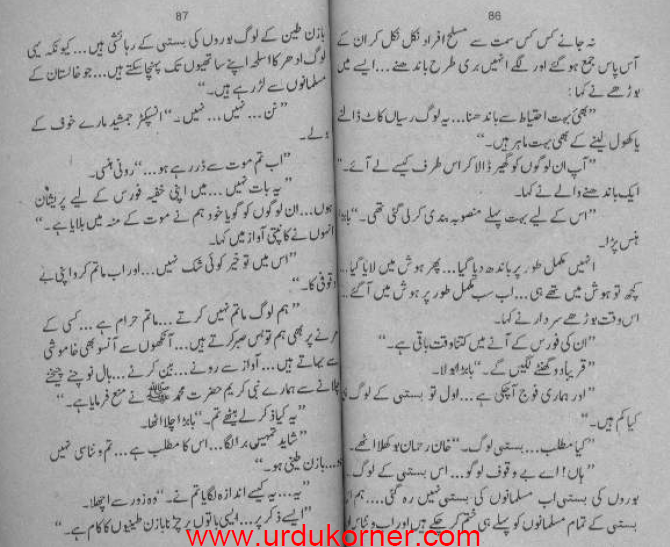 86
نہ جانے کس کس سمت سے مسلح افراد نکل نکل کر ان کے
آس پاس جمع ہو گئے اور لگے انہیں بری طرح باندھنے... ایسے میں
بوڑھے نے کہا:
"بھئی بہت احتیاط سے باندھنا... یہ لوگ رسیاں کاٹ ڈالنے
یا کھول لینے کے بھی بہت ماہر ہیں۔"
"آپ ان لوگوں کو گھیر ڈالا کر اس طرف کیسے لے آئے۔"
ایک باندھنے والے نے کہا۔
"اس کے لیے بہت پہلے منصوبہ بندی کر لی گئی تھی۔" بابرا
ہنس پڑا۔
انہیں مکمل طور پر باندھ دیا گیا... پھر ہوش میں لایا گیا...
کچھ تو ہوش میں تھے ہی... اب سب مکمل طور پر ہوش میں آ گئے...
اس وقت بوڑھے سردار نے کہا۔
"ان کی فورس کے آنے میں کتنا وقت باقی ہے۔"
"قریباً دو گھنٹے لگیں گے۔" بابرا بولا۔
"اور ہماری فوج آ چکی ہے... اول تو بستی کے لوگ
کیا کم ہیں۔"
"کیا مطلب... بستی لوگ۔" خان رحمان بوکھلا اٹھے۔
"ہاں! اے بے وقوف لوگو... اس بستی کے لوگ
بوروں کی بستی اب مسلمانوں کی بستی نہیں رہ گئی... ہم
بستی کے تمام مسلمانوں کو پہلے ہی ختم کر چکے ہیں اور اب
87
بازن طین کے لوگ بوروں کی بستی کے رہائشی ہیں... کیونکہ یہی
لوگ ادھر کا اسلحہ اپنے ساتھیوں تک پہنچا سکتے ہیں... جو خالستان کے
مسلمانوں سے لڑ رہے ہیں۔"
"نن... نہیں... نہیں۔" انسپکٹر جمشید مارے خوف کے
بولے۔
"اب تم موت سے ڈر رہے ہو..." رونی ہنسی۔
"یہ بات نہیں... میں اپنی خفیہ فورس کے لیے پریشان
ہوں... ان لوگوں کو گویا خود ہم نے موت کے منہ میں بلایا ہے۔"
انہوں نے کانپتی آواز میں کہا۔
"اس میں تو خیر کوئی شک نہیں... اور اب ماتم کرو اپنی بے
وقوفی کا۔"
"ہم لوگ ماتم نہیں کرتے... ماتم حرام ہے... کسی کے
مرنے پر بھی ہم تو بس صبر کرتے ہیں... آنکھوں سے آنسو بھی خاموشی
سے بہاتے ہیں... آواز سے رونے... بین کرنے... بال نوچنے چیخنے
چلانے سے ہمارے نبی کریم حضرت محمد ﷺ نے منع فرمایا ہے۔"
"یہ کیا ذکر لے بیٹھے تم۔" بابرا چلا اٹھا۔
"شاید تمہیں برا لگا... اس کا مطلب ہے... تم ونٹاسی نہیں
ہو... بازن طینی ہو۔"
"یہ... یہ کیسے اندازہ لگایا تم نے۔" وہ زور سے اچھلا۔
"ایسے ذکر پر... ایسی باتوں پر چڑنا بازن طینیوں کا کام ہے۔"
www.urdukorner.com